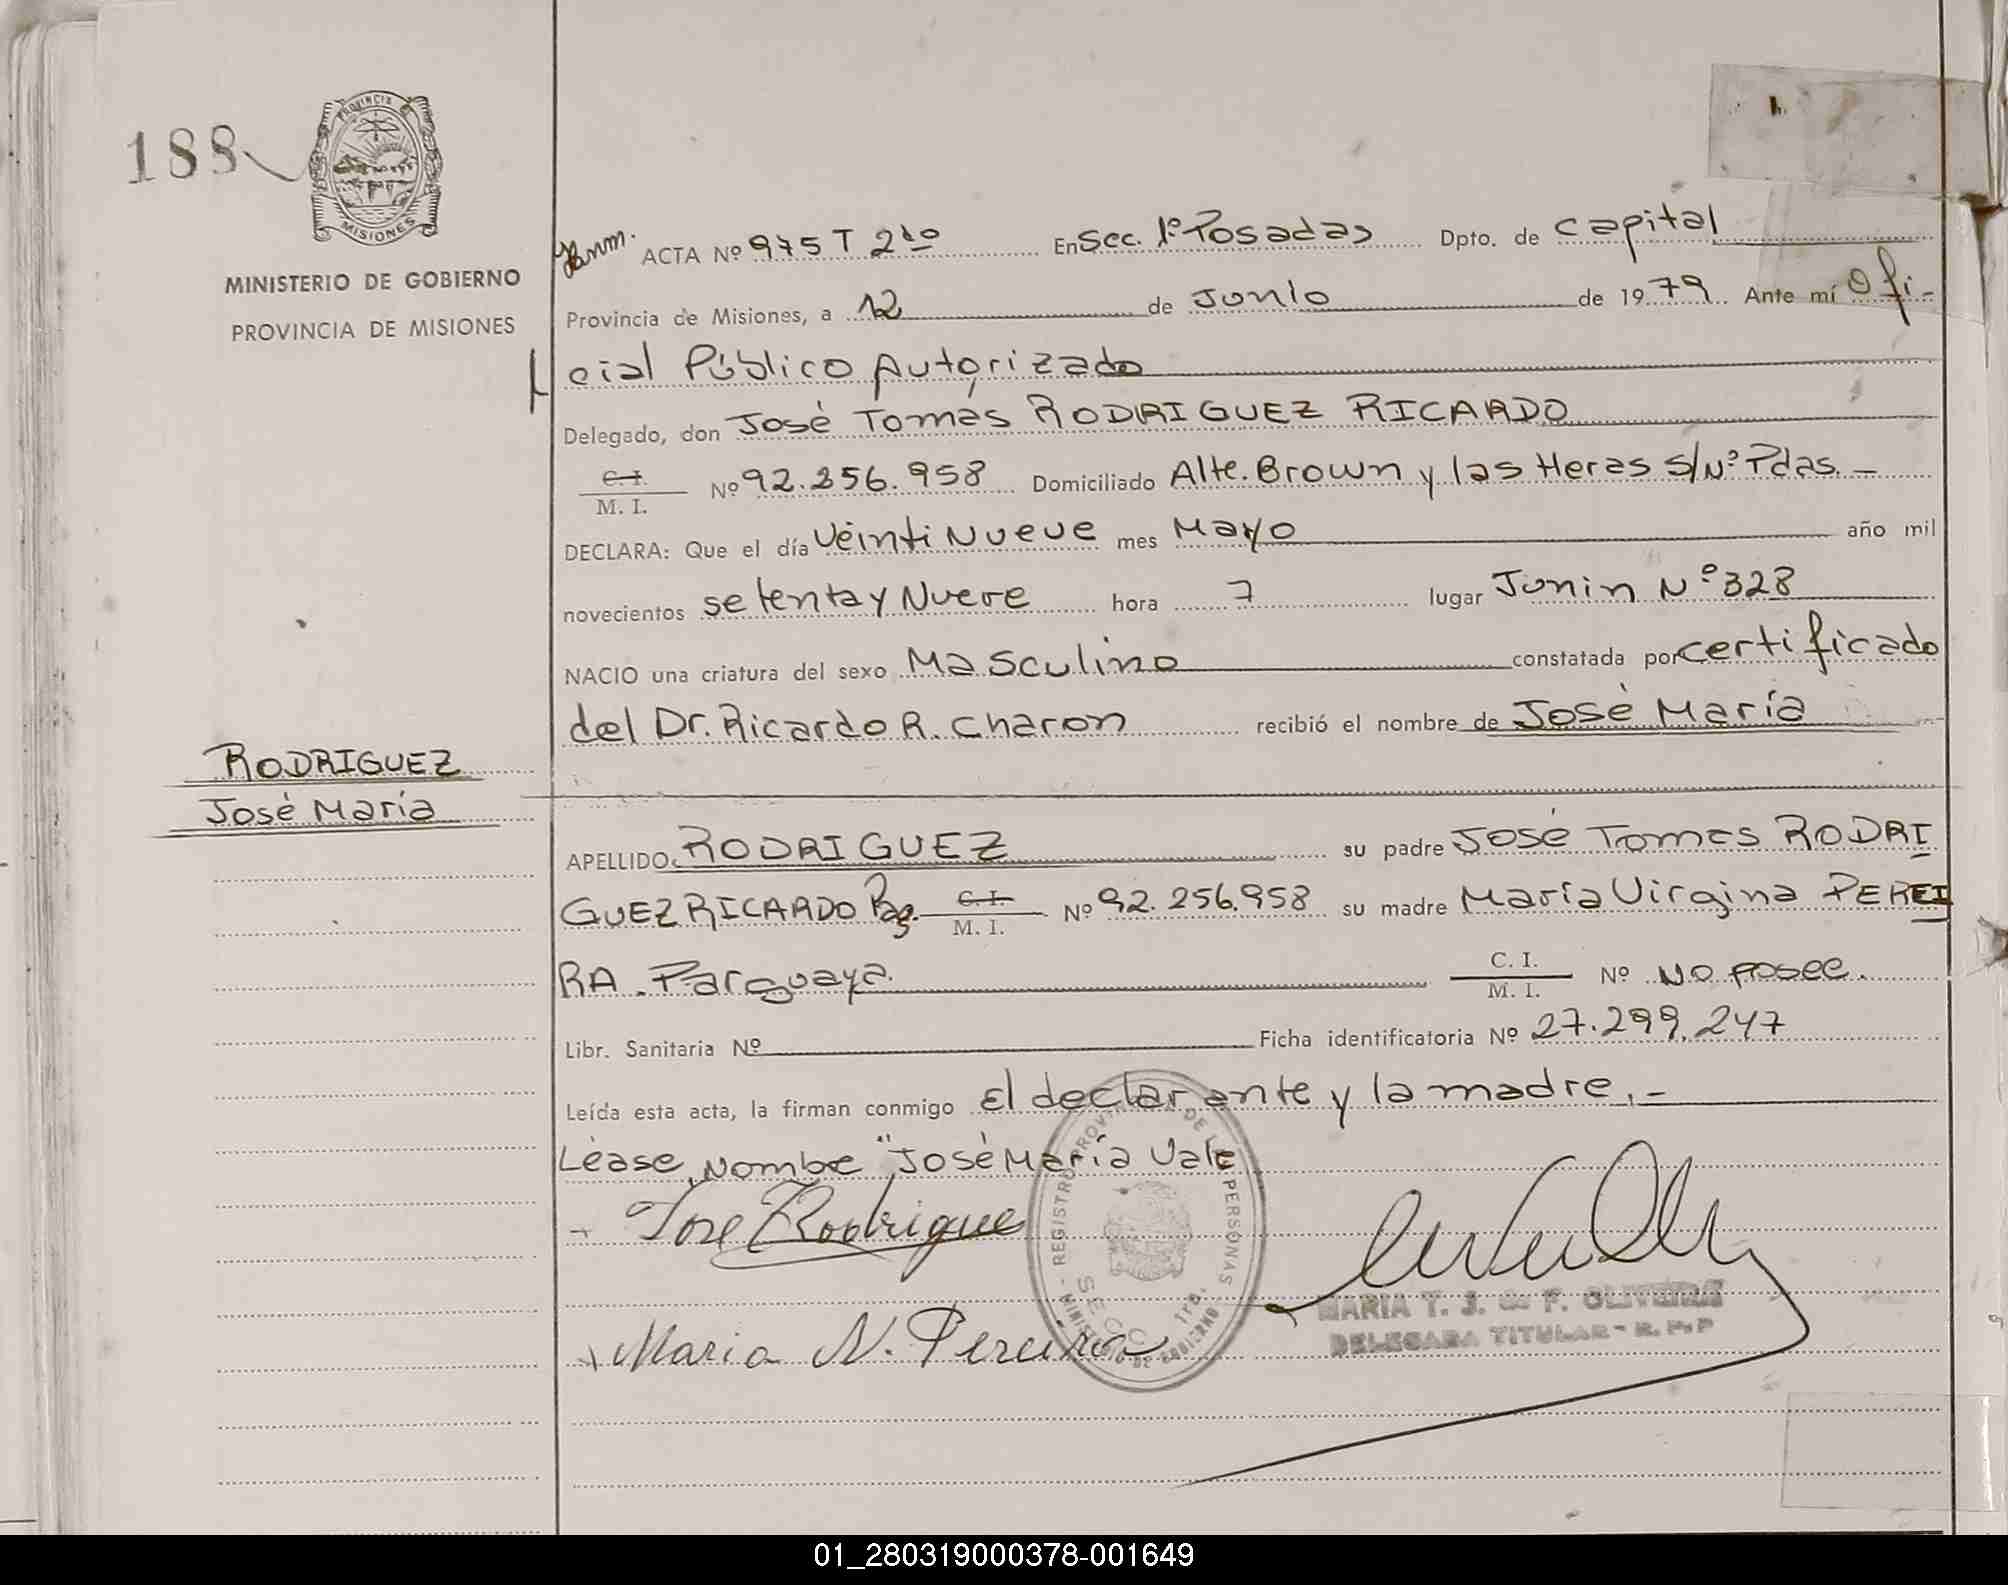 188
PROVINCIA DE
MISIONES
MINISTERIO DE GOBIERNO
PROVINCIA DE MISIONES
ACTA Nº 975 T 2do En Sec. 1º Posadas Dpto. de Capital
Provincia de Misiones, a 12 de Junio de 1979 Ante mí Ofi-
cial Público Autorizado
Delegado, don José Tomás RODRIGUEZ RICARDO
C. I.
M. I. Nº 92.256.958 Domiciliado Alte. Brown y las Heras S/Nº Pdas. -
DECLARA: Que el día Veinti Nueve mes Mayo año mil
novecientos setenta y Nueve hora 7 lugar Junin Nº 328
NACIO una criatura del sexo Masculino constatada por certificado
del Dr. Ricardo R. Charon recibió el nombre de José María
RODRIGUEZ
José María
APELLIDO RODRIGUEZ su padre José Tomas RODRI
GUEZ RICARDO C. I.
M. I. Nº 92.256.958 su madre María Virgina PEREI
RA. Paraguaya. C. I.
M. I. Nº No posee.
Libr. Sanitaria Nº Ficha identificatoria Nº 27.299.247
Leída esta acta, la firman conmigo El declarante y la madre. -
Léase, Nombe "José María Vale
Jose Rodrigue
Maria N. Pereira
REGISTRO PROVINCIAL DE LAS PERSONAS
MINISTERIO DE GOBIERNO
SECC 1ra.
MARIA T. J. de F. OLIVEIRA
DELEGADA TITULAR - R. P. P
01_280319000378-001649